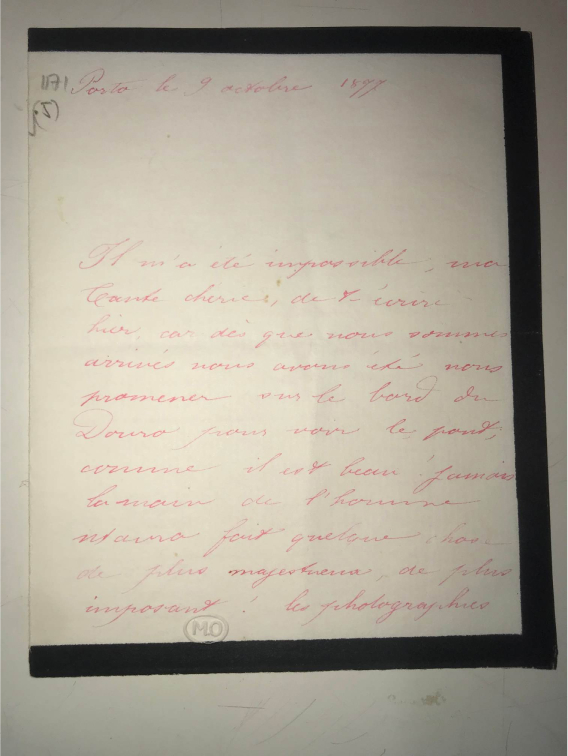 1171 Porto le 9 octobre 1877
(5)
Il m'a été impossible, ma
tante cherie, de t'écrire
hier, car dès que nous sommes
arrivés nous avons été nous
promener sur le bord du
Douro pour voir le pont,
comme il est beau! jamais
la main de l'homme
n'aura fait quelque chose
de plus majestueux, de plus
imposant! les photographies
MO